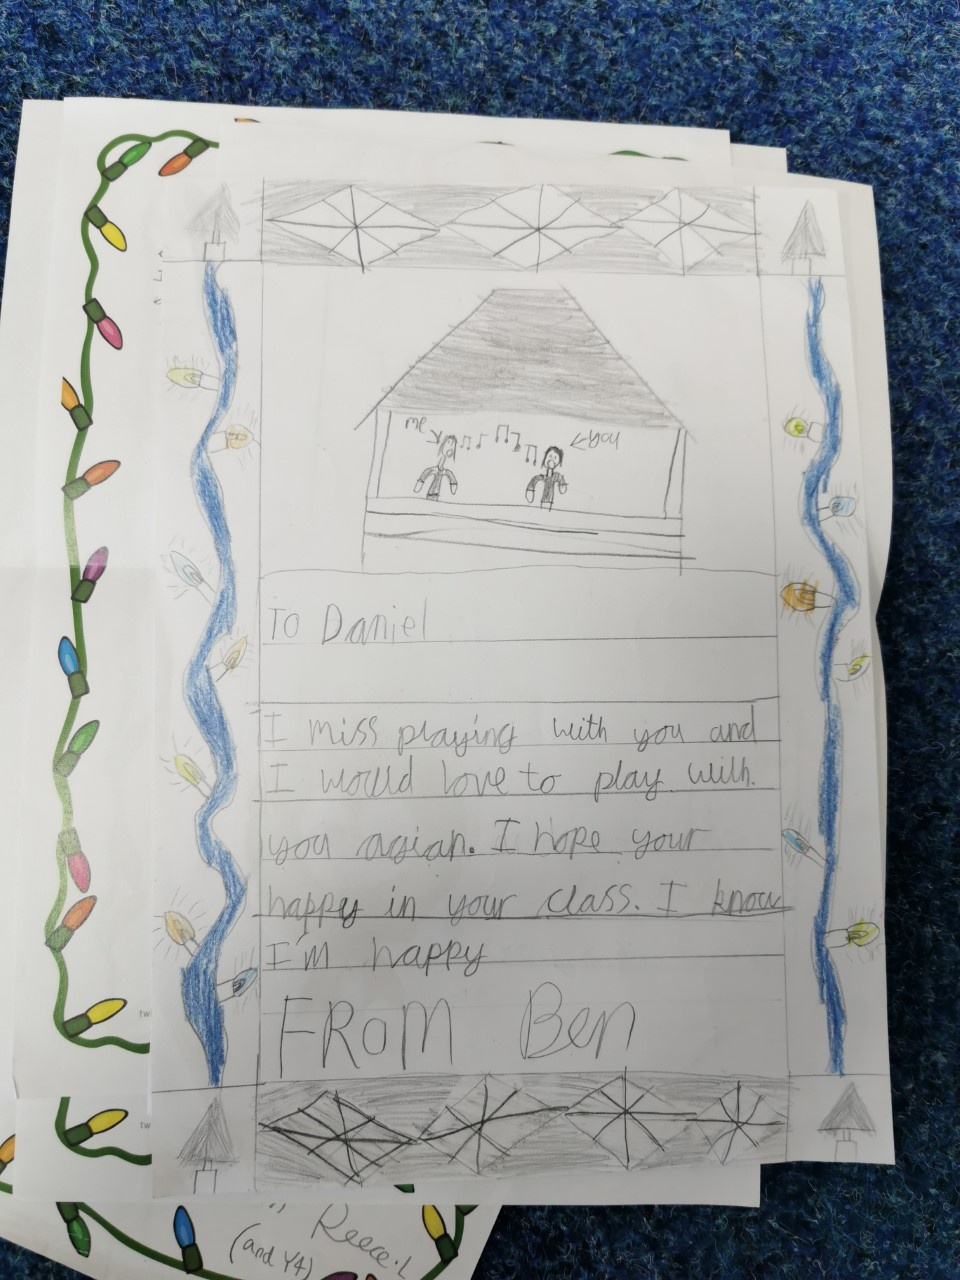 me
you
To Daniel
I miss playing with you and
I would love to play with.
you agian. I hope your
happy in your class. I know
I'm happy
FROM Ben
tw
tw
Reece.L
(and Y4)